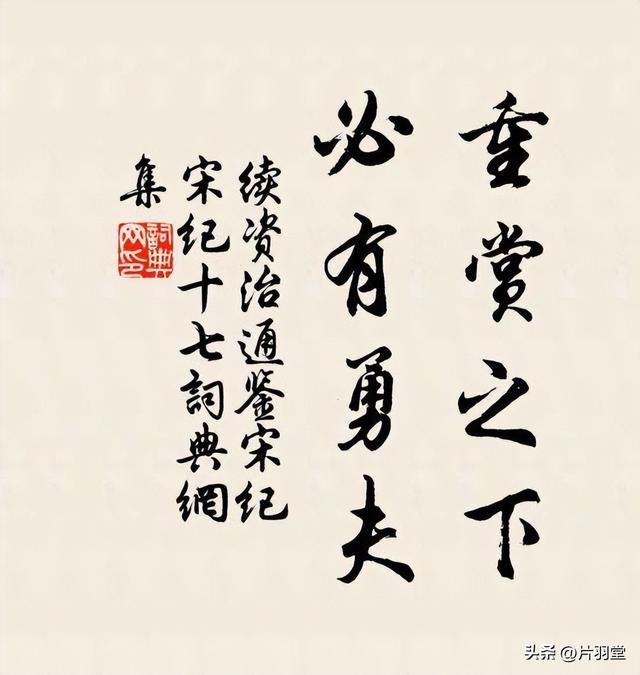 重赏之下
必有勇夫
续资治通鉴宋纪
宋纪十七詞典網
集
詞典
网印
头条 @片羽堂